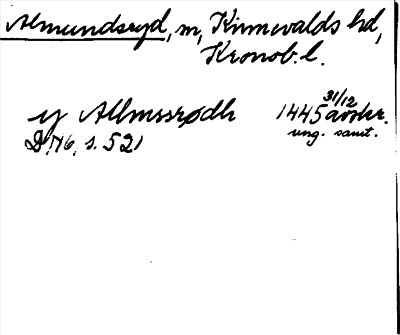 Almundsryd, m, Kinnevalds hd,
Kronob. l.
y Allmssrødh 1445 31/12 avskr.
DN 16, s. 521 ung. samt.